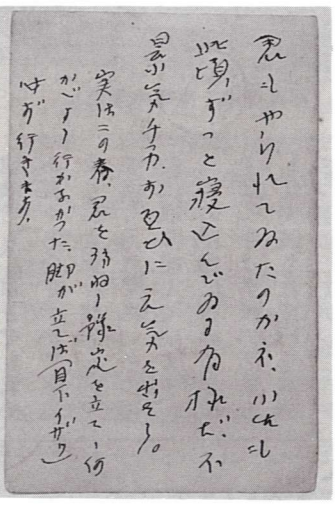 君もやられてゐたのかネ、小生も
此頃、ずつと寝込んでゐる有様だ、不
景気チヨツカ、お互ひに元気を出そう。
実はこの春、君を訪ねる予定を立て
行かなかつた、脚が立てば(目下イザリ)
必ず行きます、